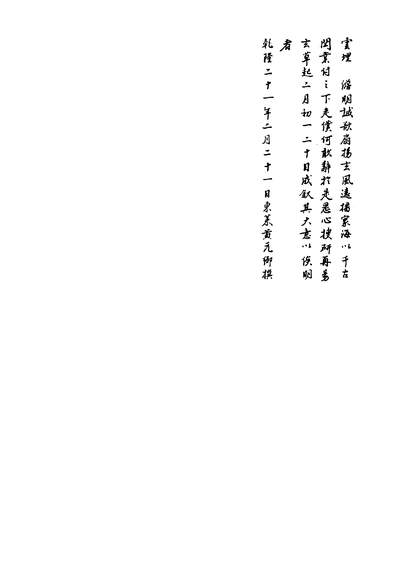 雲埋 澹明誠欲扇揚玄風遠播寰海以千古
閎業付之下走僕何敢辭於是悉心搜研再易
玄草起二月初一二十日成敘其大意以俟明
者
乾隆二十一年二月二十一日東萊黃元御撰